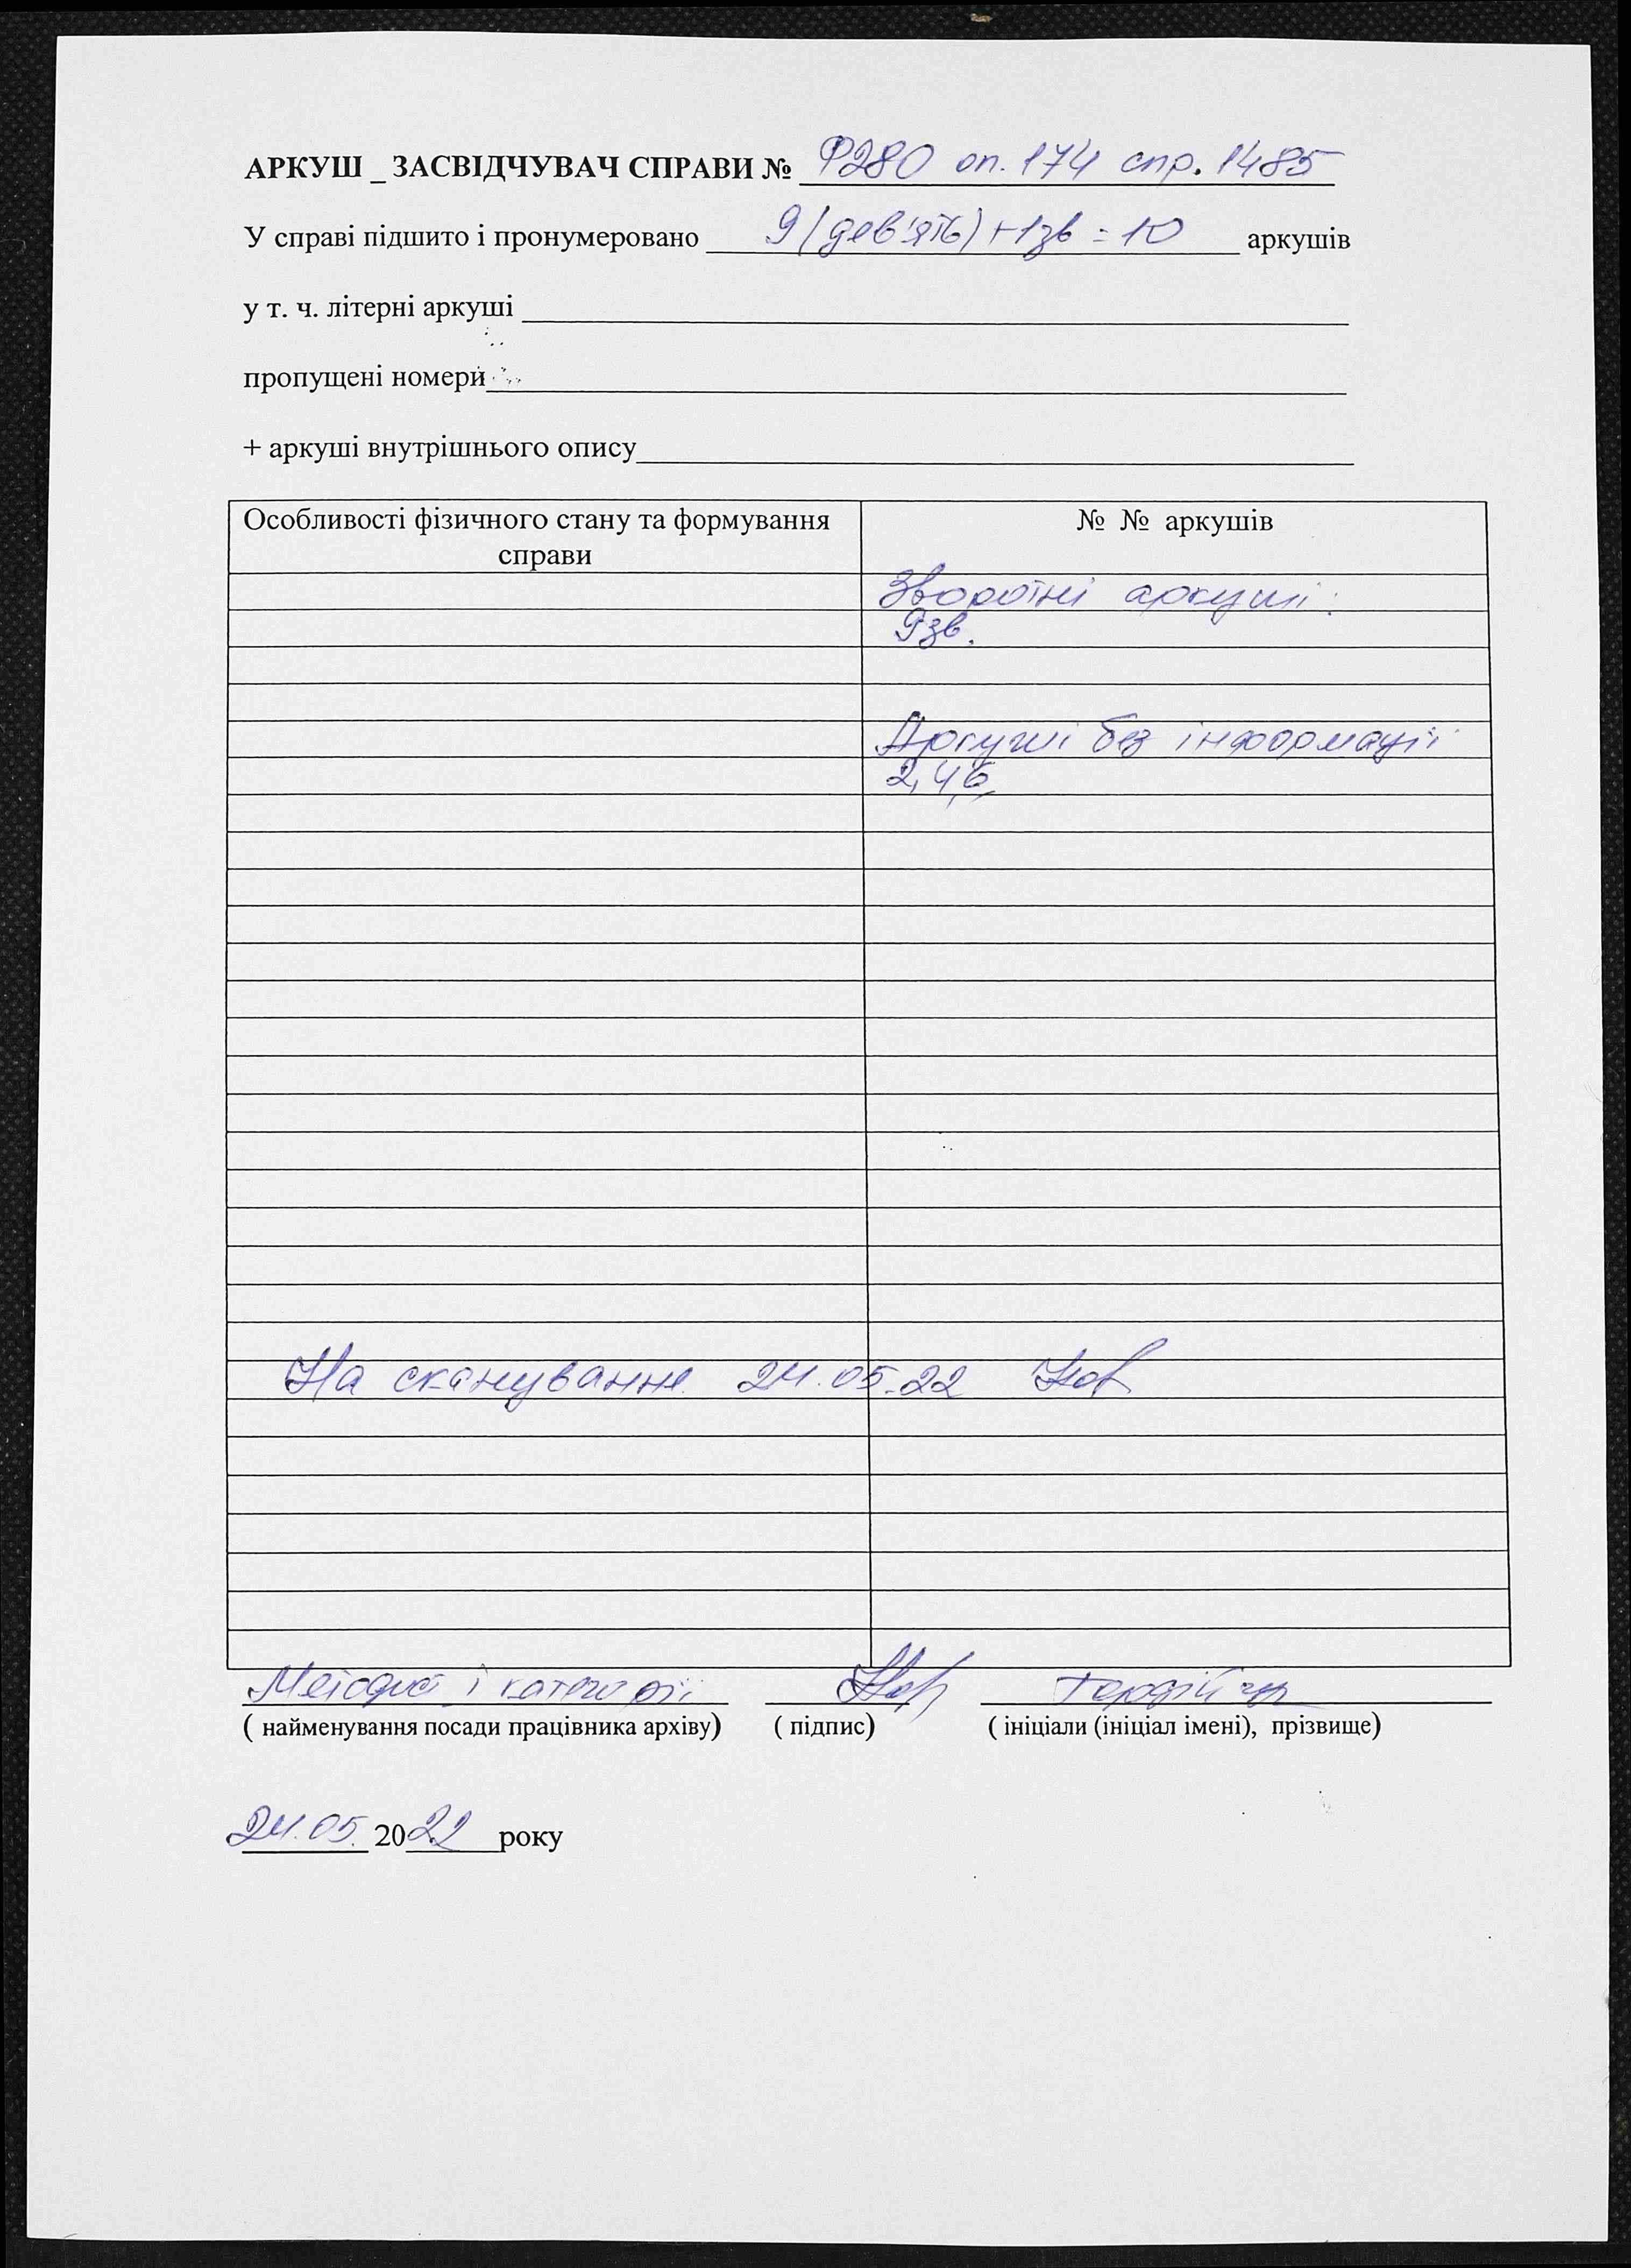 АРКУШ _ ЗАСВІДЧУВАЧ СПРАВИ № Ф280 оп. 174 спр. 1485
У справі підшито і пронумеровано 9 (дев'ять) + 1зв = 10 аркушів
у т. ч. літерні аркуші
пропущені номери
+ аркуші внутрішнього опису
Особливості фізичного стану та формування № № аркушів
справи
Зворотні аркуші:
9зв.
Аркуші без інформації
2, 4, 6,
На сканування 24.05.22
Методист і категорії
( найменування посади працівника архіву) ( підпис) ( ініціали (ініціал імені), прізвище)
24.05. 2022 року